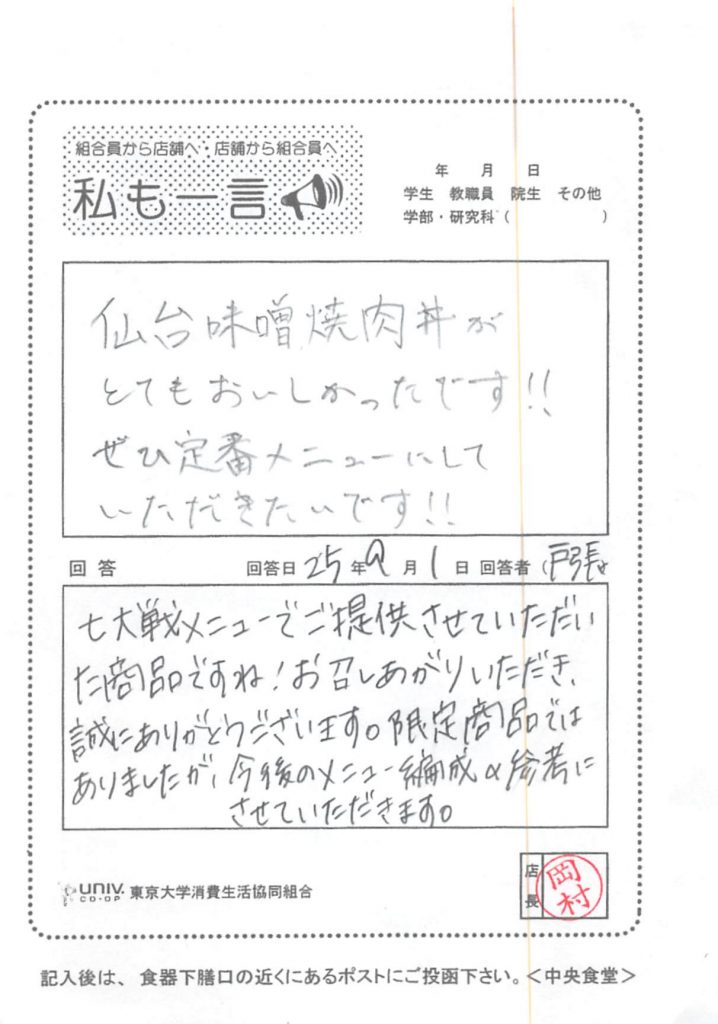 組合員から店舗へ・店舗から組合員へ
私も一言
年 月 日
学生 教職員 院生 その他
学部・研究科（ ）
仙台味噌焼肉丼が
とてもおいしかったです!!
ぜひ定番メニューにして
いただきたいです!!
回答 回答日 25年9月1日 回答者（戸張
七大戦メニューでご提供させていただい
た商品ですね!お召しあがりいただき、
誠にありがとうございます。限定商品では
ありましたが、今後のメニュー編成の参考に
させていただきます。
UNIV. CO-OP 東京大学消費生活協同組合
店長 岡村
記入後は、食器下膳口の近くにあるポストにご投函下さい。＜中央食堂＞